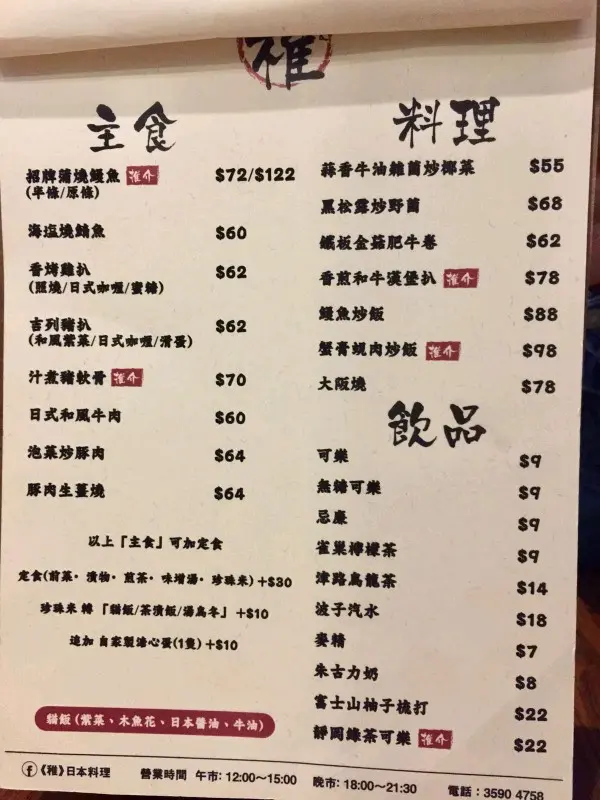 稚
主食
招牌蒲燒鰻魚 推介 $72/$122
(半條/原條)
海塩燒鯖魚 $60
香烤雞扒 $62
(照燒/日式咖喱/蜜糖)
吉列豬扒 $62
(和風紫菜/日式咖喱/滑蛋)
汁煮豬軟骨 推介 $70
日式和風牛肉 $60
泡菜炒豚肉 $64
豚肉生薑燒 $64
以上「主食」可加定食
定食(前菜・漬物・煎茶・味增湯・珍珠米)+$30
珍珠米 轉 「貓飯/茶漬飯/湯烏冬」+$10
追加 自家製溏心蛋(1隻)+$10
貓飯(紫菜、木魚花、日本醬油、牛油)
料理
蒜香牛油雜菌炒椰菜 $55
黑松露炒野菌 $68
鐵板金菇肥牛卷 $62
香煎和牛漢堡扒 推介 $78
鰻魚炒飯 $88
蟹膏蜆肉炒飯 推介 $98
大阪燒 $78
飲品
可樂 $9
無糖可樂 $9
忌廉 $9
雀巢檸檬茶 $9
津路烏龍茶 $14
波子汽水 $18
麥精 $7
朱古力奶 $8
富士山柚子梳打 $22
靜岡綠茶可樂 推介 $22
f 《稚》日本料理 營業時間 午市: 12:00～15:00 晚市: 18:00～21:30 電話：3590 4758